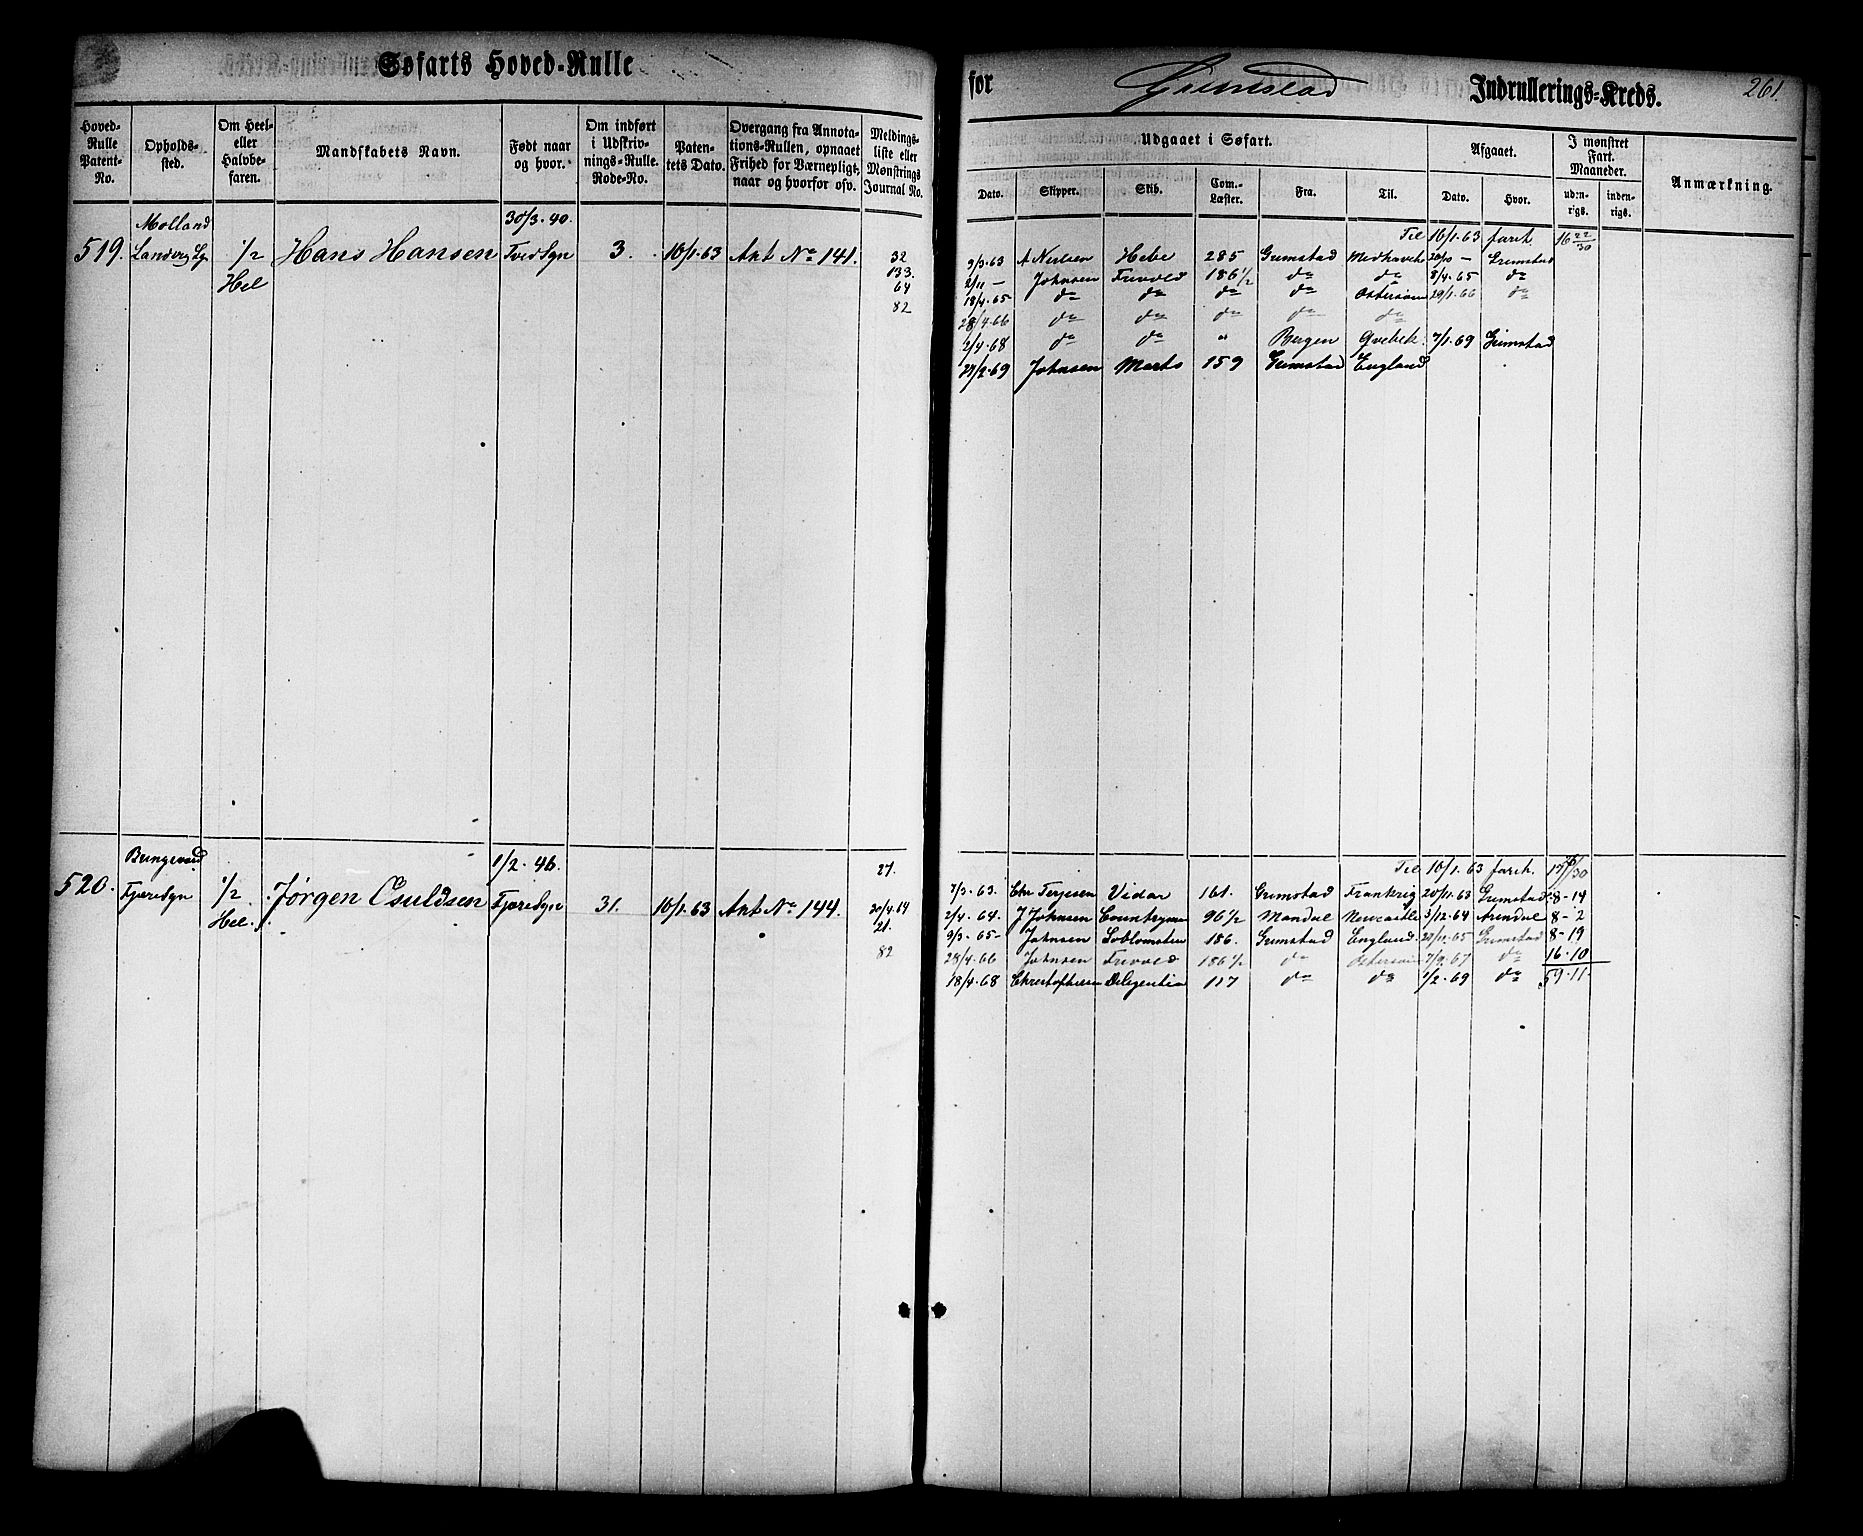 Søfarts Hoved-Rulle
for Grimstad Indrullerings-Kreds. 261.
Hoved-Rulle Patent-No.
Opholds-sted.
Om Heel- eller Halvbe-faren.
Mandskabets Navn.
Født naar og hvor.
Om indført i Udskriv-nings-Rulle. Rode-No.
Paten-tets Dato.
Overgang fra Annota-tions-Rullen, opnaaet Frihed for Værnepligt, naar og hvorfor osv.
Meldings-liste eller Mønstrings Journal No.
Udgaaet i Søfart.
Afgaaet.
I mønstret Fart. Maaneder.
Anmærkning.
Dato. Skipper. Skib. Com.-Læster. Fra. Til. Dato. Hvor. uden-rigs. inden-rigs.
Molland 30/3. 40.
519. Landvig Sg 1/2 Hans Hansen Tved Sgn 3. 10/1. 63 Ant No 141. 32
Hel 133.
64
82
Til 16/1. 63 farit. 16 22/30
3/3. 63 A Nielsen Hebe 285 Grimstad Medhavete 20/3 — Grimstad
2/11 — Johnsen Frivold 186 1/2 do do 8/4. 65 do
18/4. 65 do do do do Østersøen 29/1. 66 do
28/4. 66 do do do do do
2/4. 68 do do " Bergen Qvebek. 7/1. 69 Grimstad
27/2. 69 Johnsen Marts 159 Grimstad England
Bringsvær 1/2. 46. 27.
520. Fjæresgn 1/2 Jørgen Osuldsen Fjæresgn 31. 10/1. 63 Ant No 144. 20/4. 64
Hel. 21.
82
Til 10/1. 63 farit.
7/3. 63. Chr Terjesen Vidar 161. Grimstad Frankrig 20/11. 63 Grimstad 8-14
2/4. 64. J Johnsen Countryman 96 1/2 Mandal Newcastle 3/12. 64 Arendal 8-2
9/3. 65- Johnsen Solblomsten 186. Grimstad England. 28/11. 65 Grimstad 8-19
28/4. 66 Johnsen Frivold 186 1/2 do Østersøen 7/9. 67 do 16.10
18/4. 68 Christophersen Deligentia 117 do do 1/2. 69 do 59.11